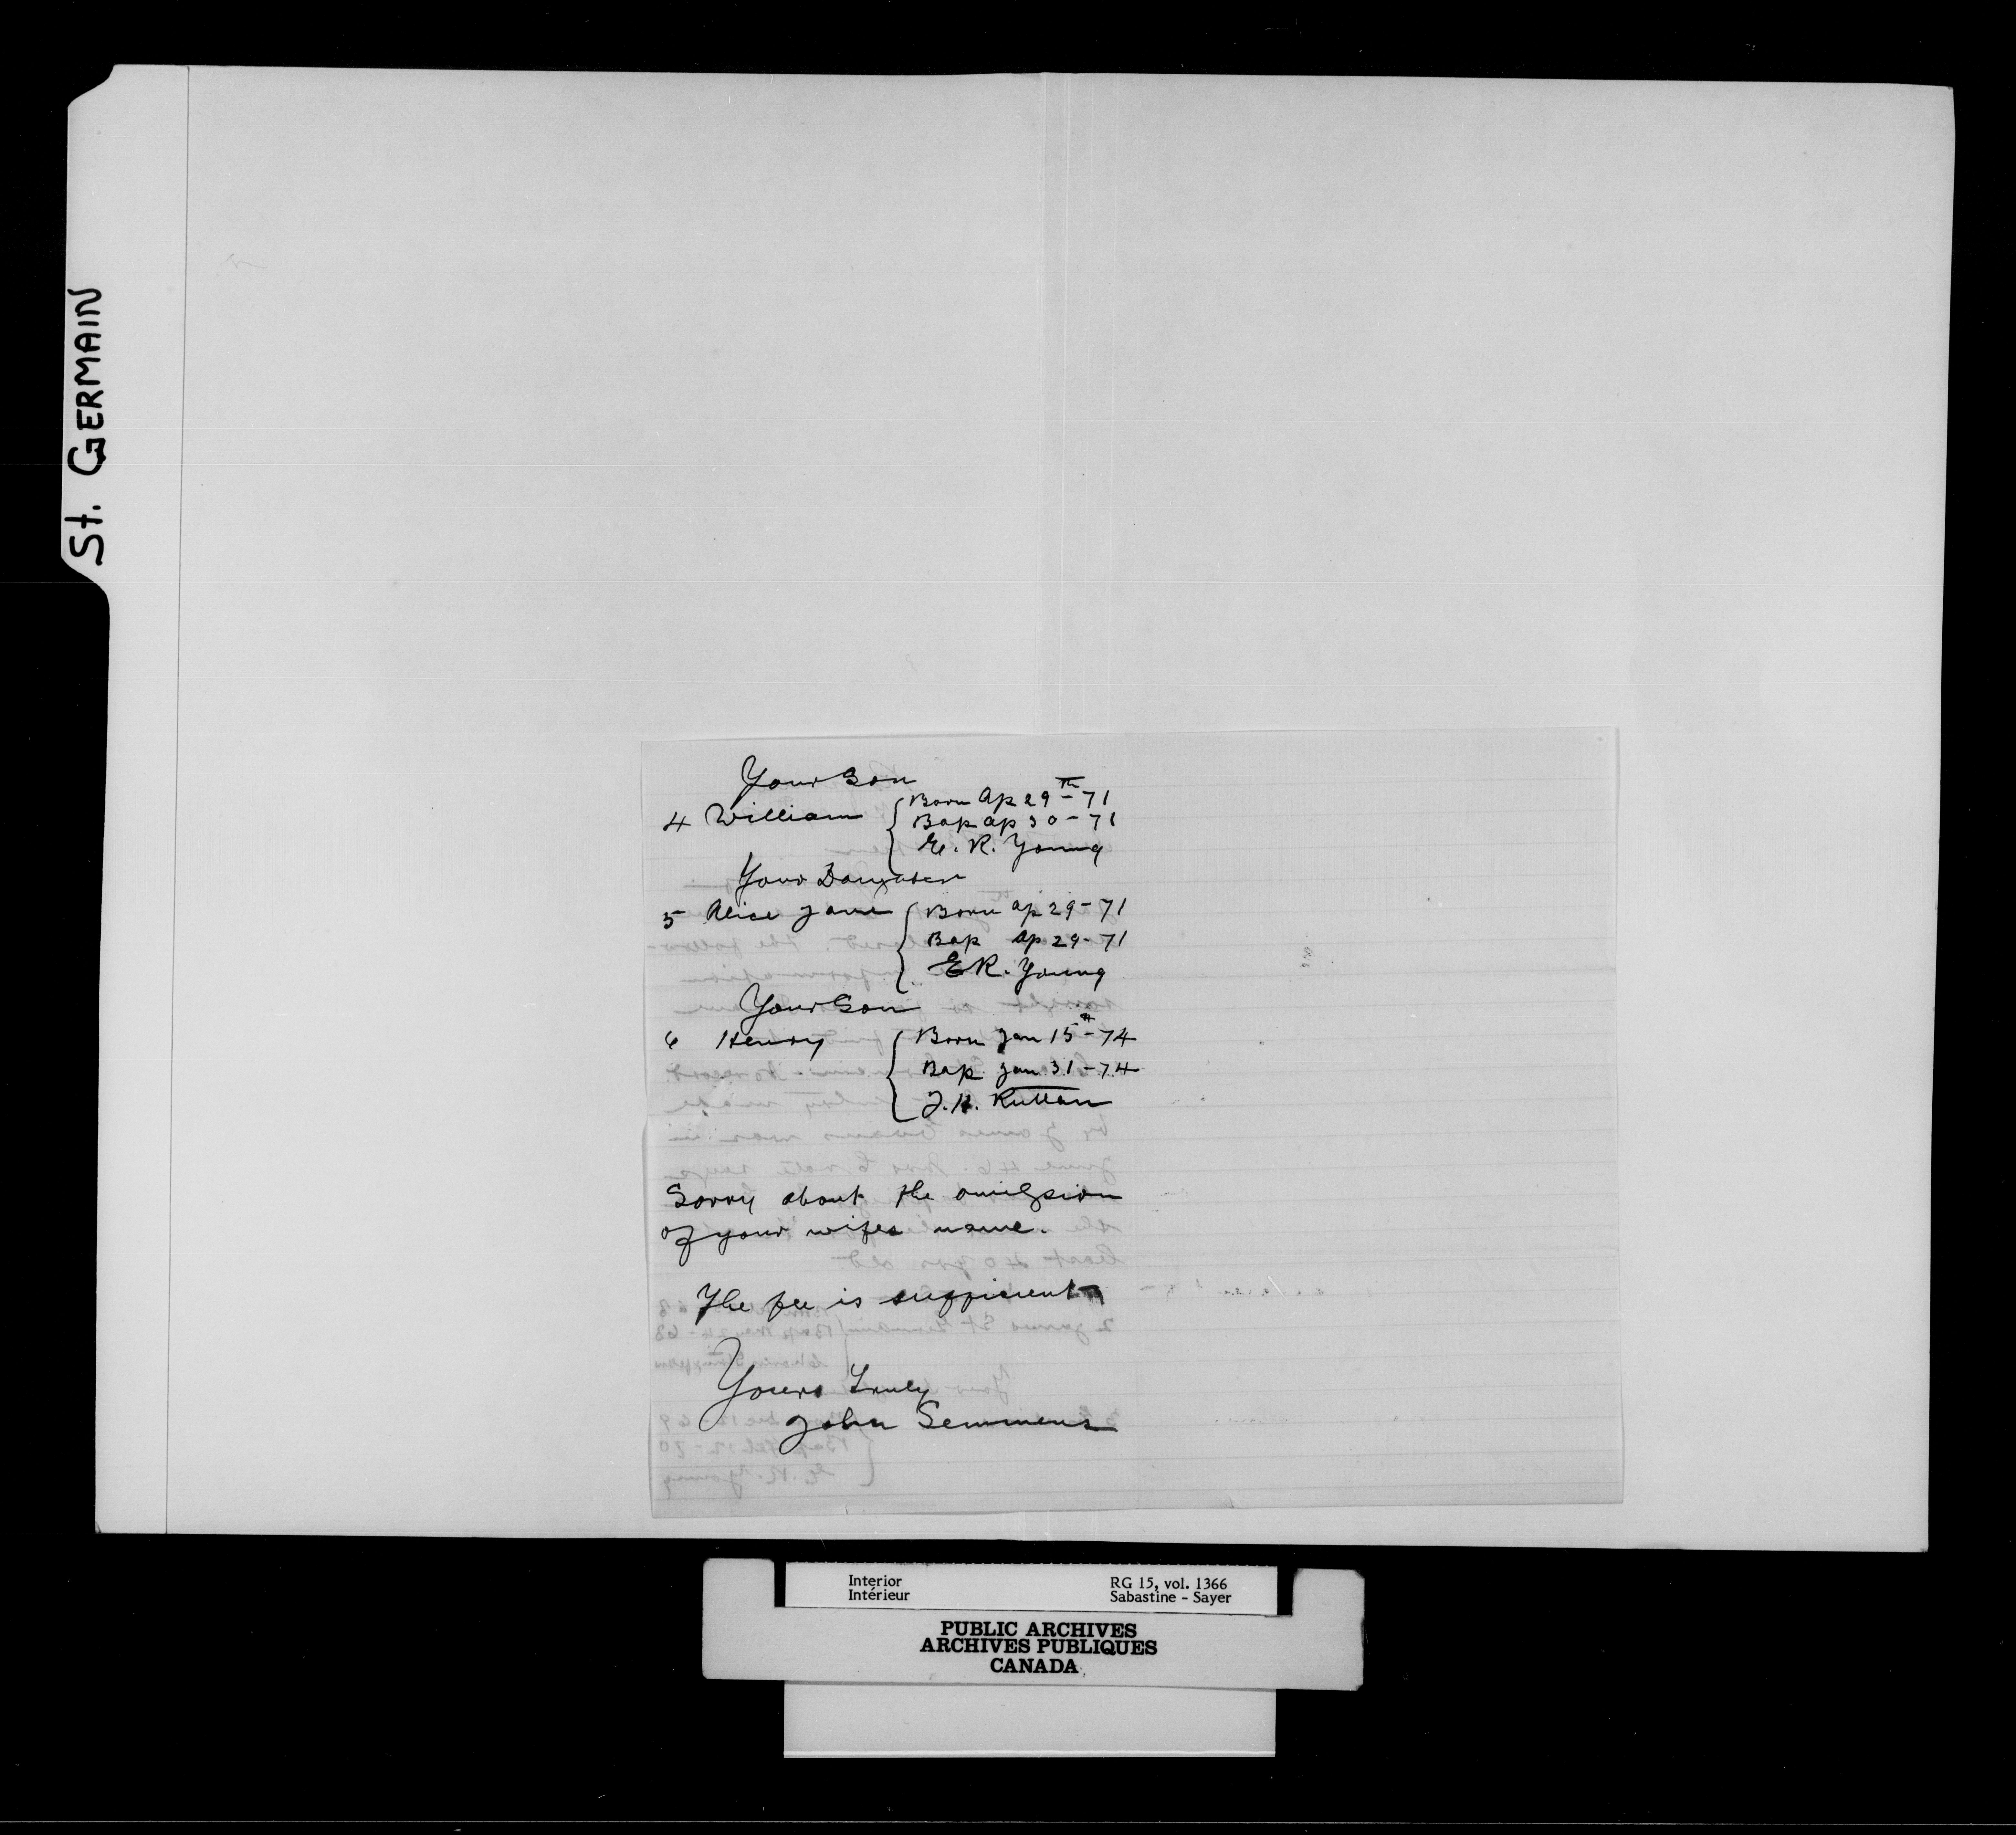 St. GERMAIN
Your Son
4 William
Born Ap 29th - 71
Bap ap 30 - 71
E. R. Young
Your Daughter
5 Alice Jane
Born ap 29 - 71
Bap Ap 29 - 71
E R. Young
Your Son
6 Henry
Born Jan 15th - 74
Bap Jan 31 - 74
J. H. Ruttan
Sorry about the omission
of your wifes name.
The fee is sufficient
Yours Truly
John Semmens
Interior
Intérieur
RG 15, vol. 1366
Sabastine - Sayer
PUBLIC ARCHIVES
ARCHIVES PUBLIQUES
CANADA